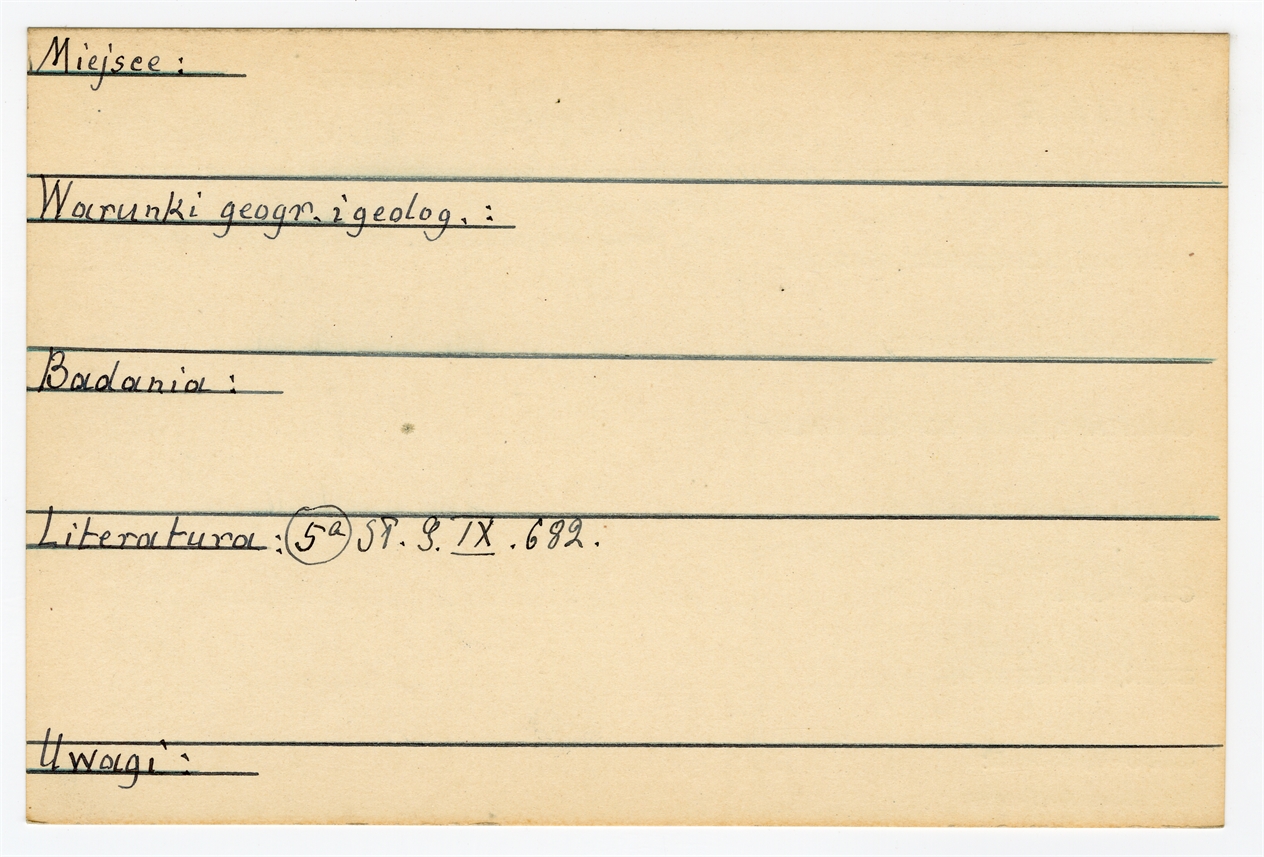 Miejsce :
Warunki geogr. i geolog. :
Badania :
Literatura : 5a ST. G. IX . 682 .
Uwagi :